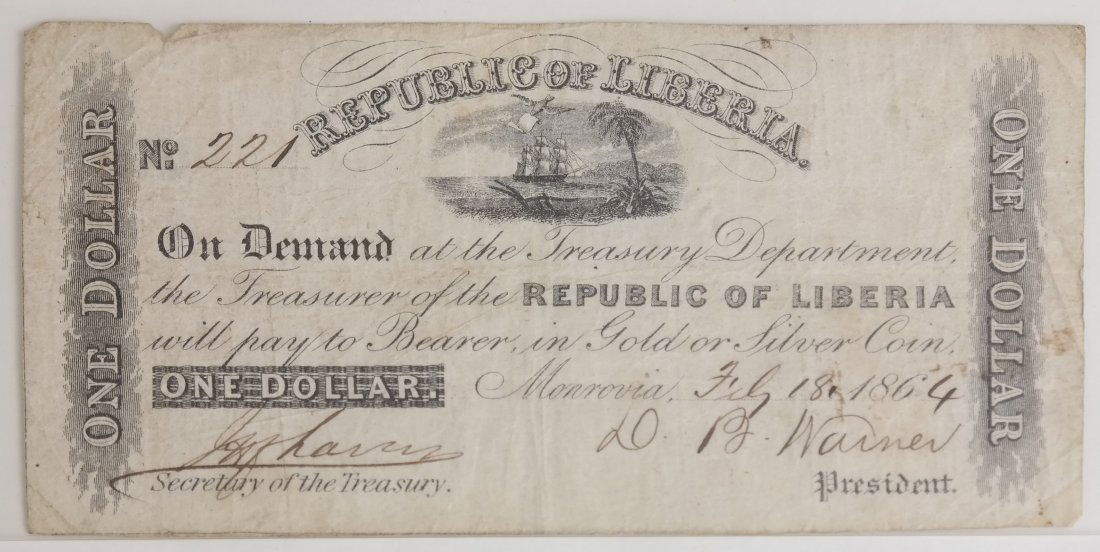 REPUBLIC OF LIBERIA.
ONE DOLLAR
ONE DOLLAR
No. 221
On Demand at the Treasury Department,
the Treasurer of the REPUBLIC OF LIBERIA
will pay to Bearer, in Gold or Silver Coin.
ONE DOLLAR. Monrovia, Feby 18. 1864
D. B. Warner
Secretary of the Treasury. President.